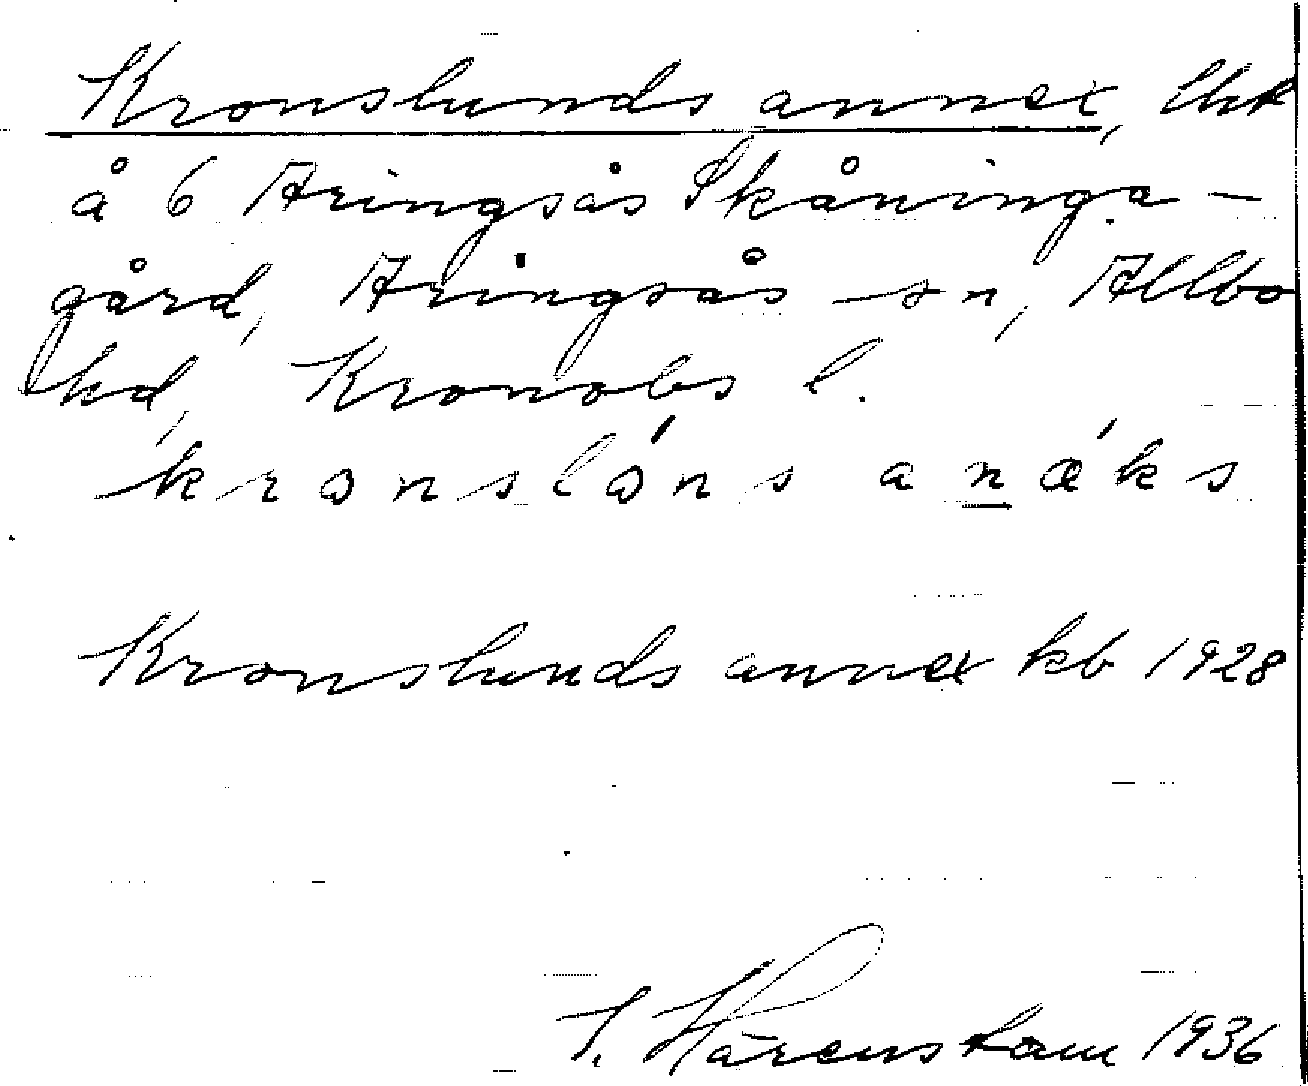 Kronslunds annex, lhk
å 6 Aringsås Skåninga-
gård, Aringsås sn, Allbo
hd, Kronobs l.
kronslóns anǽks
Kronslunds annex kb 1928
Härenstam 1936